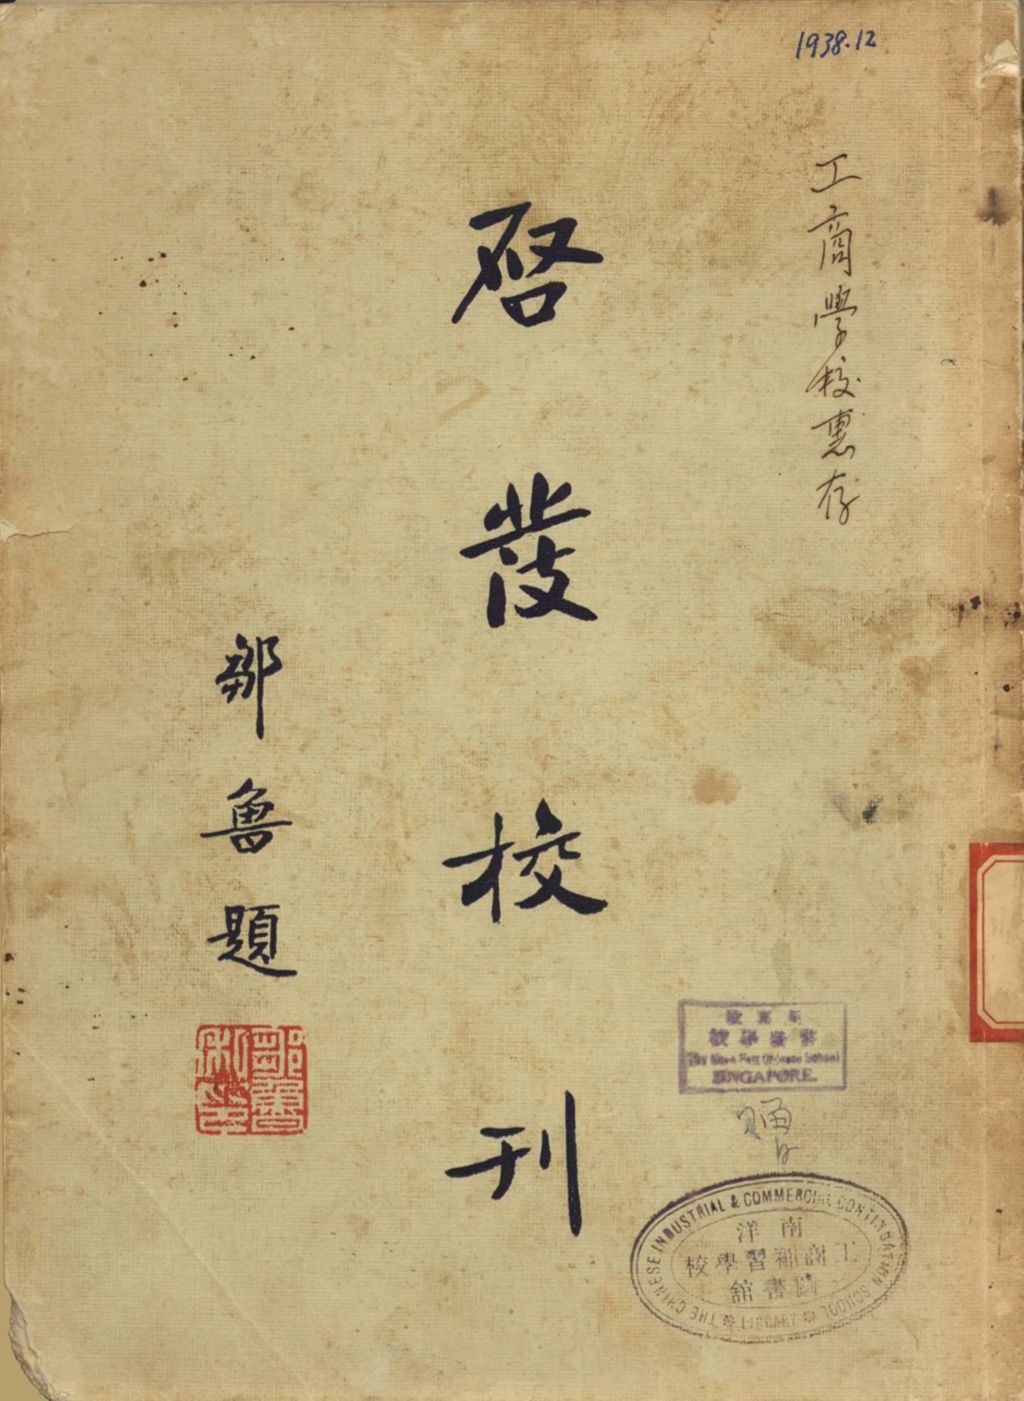 1938.12
工商學校惠存
啓發校刊
鄒魯題
啓發學校
SINGAPORE.
贈
THE CHINESE INDUSTRIAL & COMMERCIAL CONTINUATION SCHOOL
LIBRARY
南洋
工商補習學校
圖書館